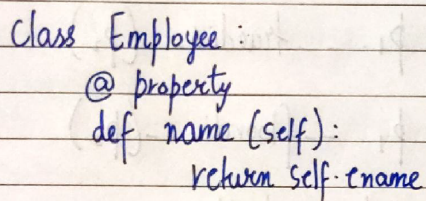 Class Employee :
@ property
def name (self) :
return self.ename